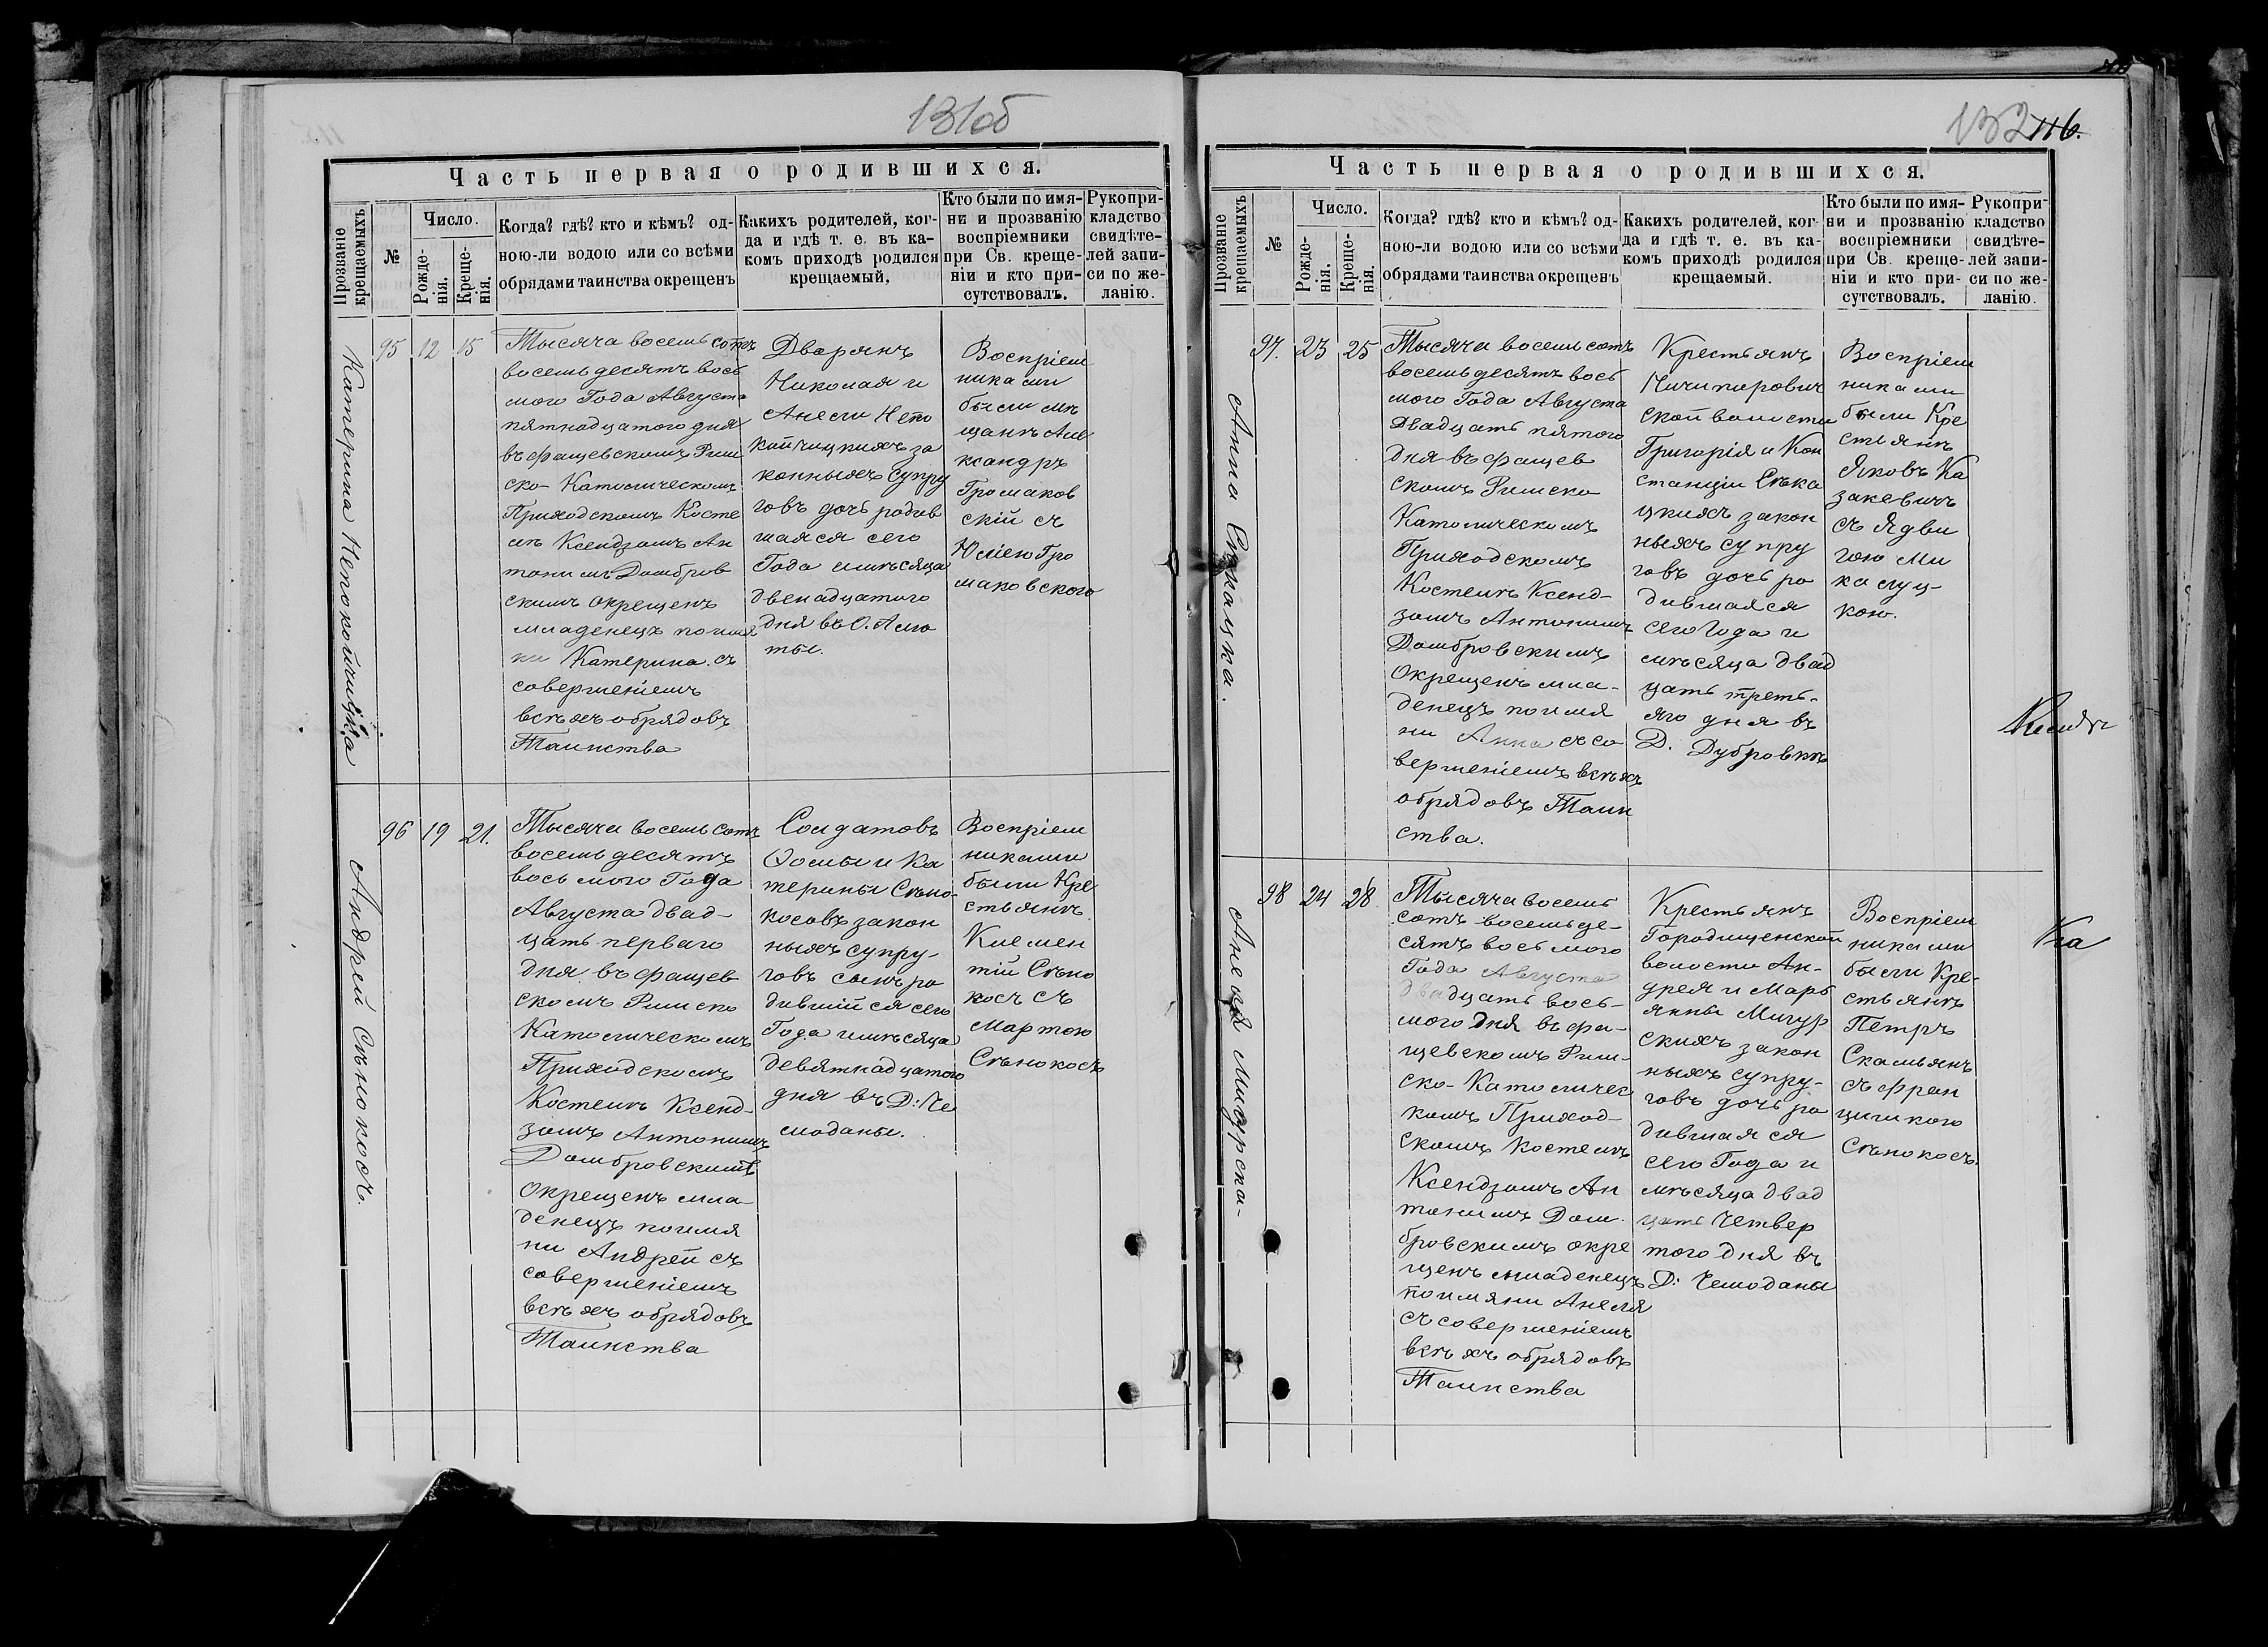 131об
Часть первая о родившихся.
Прозваніе крещаемыхъ
№
Число.
Рожденія.
Крещенія.
Когда? гдѣ? кто и кѣмъ? од-
ною-ли водою или со всѣми
обрядами таинства окрещенъ
Какихъ родителей, ког-
да и гдѣ т. е. въ ка-
комъ приходѣ родился
крещаемый,
Кто были по имя-
ни и прозванію
воспріемники
при Св. креще-
ніи и кто при-
сутствовалъ.
Рукопри-
кладство
свидѣте-
лей запи-
си по же-
ланію.
Катерина Непокойчицка
95
12
15
Тысяча восемь сотъ
восемьдесятъ вось
мого Года Августа
пятнадцатого дня
въ Фащевскомъ Рим
ско-Католическомъ
Приходскомъ Косте
лѣ Ксендзомъ Ан
тонимъ Домбров
скимъ окрещенъ
младенецъ по имя
ни Катерина съ
совершеніемъ
всѣхъ обрядовъ
Таинства
Дворянъ
Николая и
Анели Непо
койчицкихъ за
конныхъ супру
говъ дочь родив
шаяся сего
Года и мѣсяца
двенадцатого
дня въ О. Алю
ты.
Воспріем
никами
были мѣ
щанъ Але
ксандръ
Громаков
скій съ
Юліею Гро
маковского
Андрей Сѣнокосъ.
96
19
21.
Тысяча восемь сотъ
восемьдесятъ
восьмого Года
Августа двад-
цать перваго
дня въ Фащев
скомъ Римско
Католическомъ
Приходскомъ
Костелѣ Ксенд-
зомъ Антонимъ
Домбровскимъ
окрещенъ мла
денецъ по имя
ни Андрей съ
совершеніемъ
всѣхъ обрядовъ
Таинства
Солдатовъ
Фомы и Ка
терины Сѣно-
косовъ закон
ныхъ супру-
говъ сынъ ро
дившійся сего
Года и мѣсяца
девятнадцатого
дня въ Д: Че
моданы.
Воспріем
никами
были Кре
стьянъ
Клемен
тій Сѣно
косъ съ
Мартою
Сѣнокосъ
132 116.
Часть первая о родившихся.
Прозваніе крещаемыхъ
№
Число.
Рожденія.
Крещенія.
Когда? гдѣ? кто и кѣмъ? од-
ною-ли водою или со всѣми
обрядами таинства окрещенъ
Какихъ родителей, ког-
да и гдѣ т. е. въ ка-
комъ приходѣ родился
крещаемый.
Кто были по имя-
ни и прозванію
воспріемники
при Св. креще-
ніи и кто при-
сутствовалъ.
Рукопри-
кладство
свидѣте-
лей запи-
си по же-
ланію.
Анна
97.
23
25
Тысяча восемь сотъ
восемьдесятъ вось
мого Года Августа
Двадцать пятого
дня въ Фащев
скомъ Римско
Католическомъ
Приходскомъ
Костелѣ Ксенд-
зомъ Антонимъ
Домбровскимъ
Окрещенъ мла-
денецъ по имя
ни Анна съ со
вершеніемъ всѣхъ
обрядовъ Таин
ства.
Крестьянъ
Чичипирович
ской волости
Григорія и Кон
станціи
цкихъ закон
ныхъ супру
говъ дочь ро
дившаяся
сего Года и
мѣсяца двад
цать треть-
яго дня въ
Д. Дубровкѣ
Воспріем
никами
были Кре
стьянъ
Яковъ Ка
закевичъ
съ Ядви
гою Ми
калуц-
кою.
Анеля Мигурска-
98
24
28
Тысяча восемь
сотъ восемьде-
сятъ восьмого
Года Августа
двадцать вось-
мого дня въ Фа-
щевскомъ Рим-
ско-Католичес
комъ Приход-
скомъ Костелѣ
Ксендзомъ Ан
тонимъ Дом-
бровскимъ окре
щенъ младенецъ
по имяни Анеля
съ совершеніемъ
всѣхъ обрядовъ
Таинства
Крестьянъ
Городищенской
волости Ан-
дрея и Марь
янны Мигур
скихъ закон
ныхъ супру-
говъ дочь ро
дившаяся
сего Года и
мѣсяца двад
цать четвер
того дня въ
Д: Чемоданы
Воспріем
никами
были Кре-
стьянъ
Петръ
Скамьянъ
съ Фран
цишкою
Сѣнокосъ.